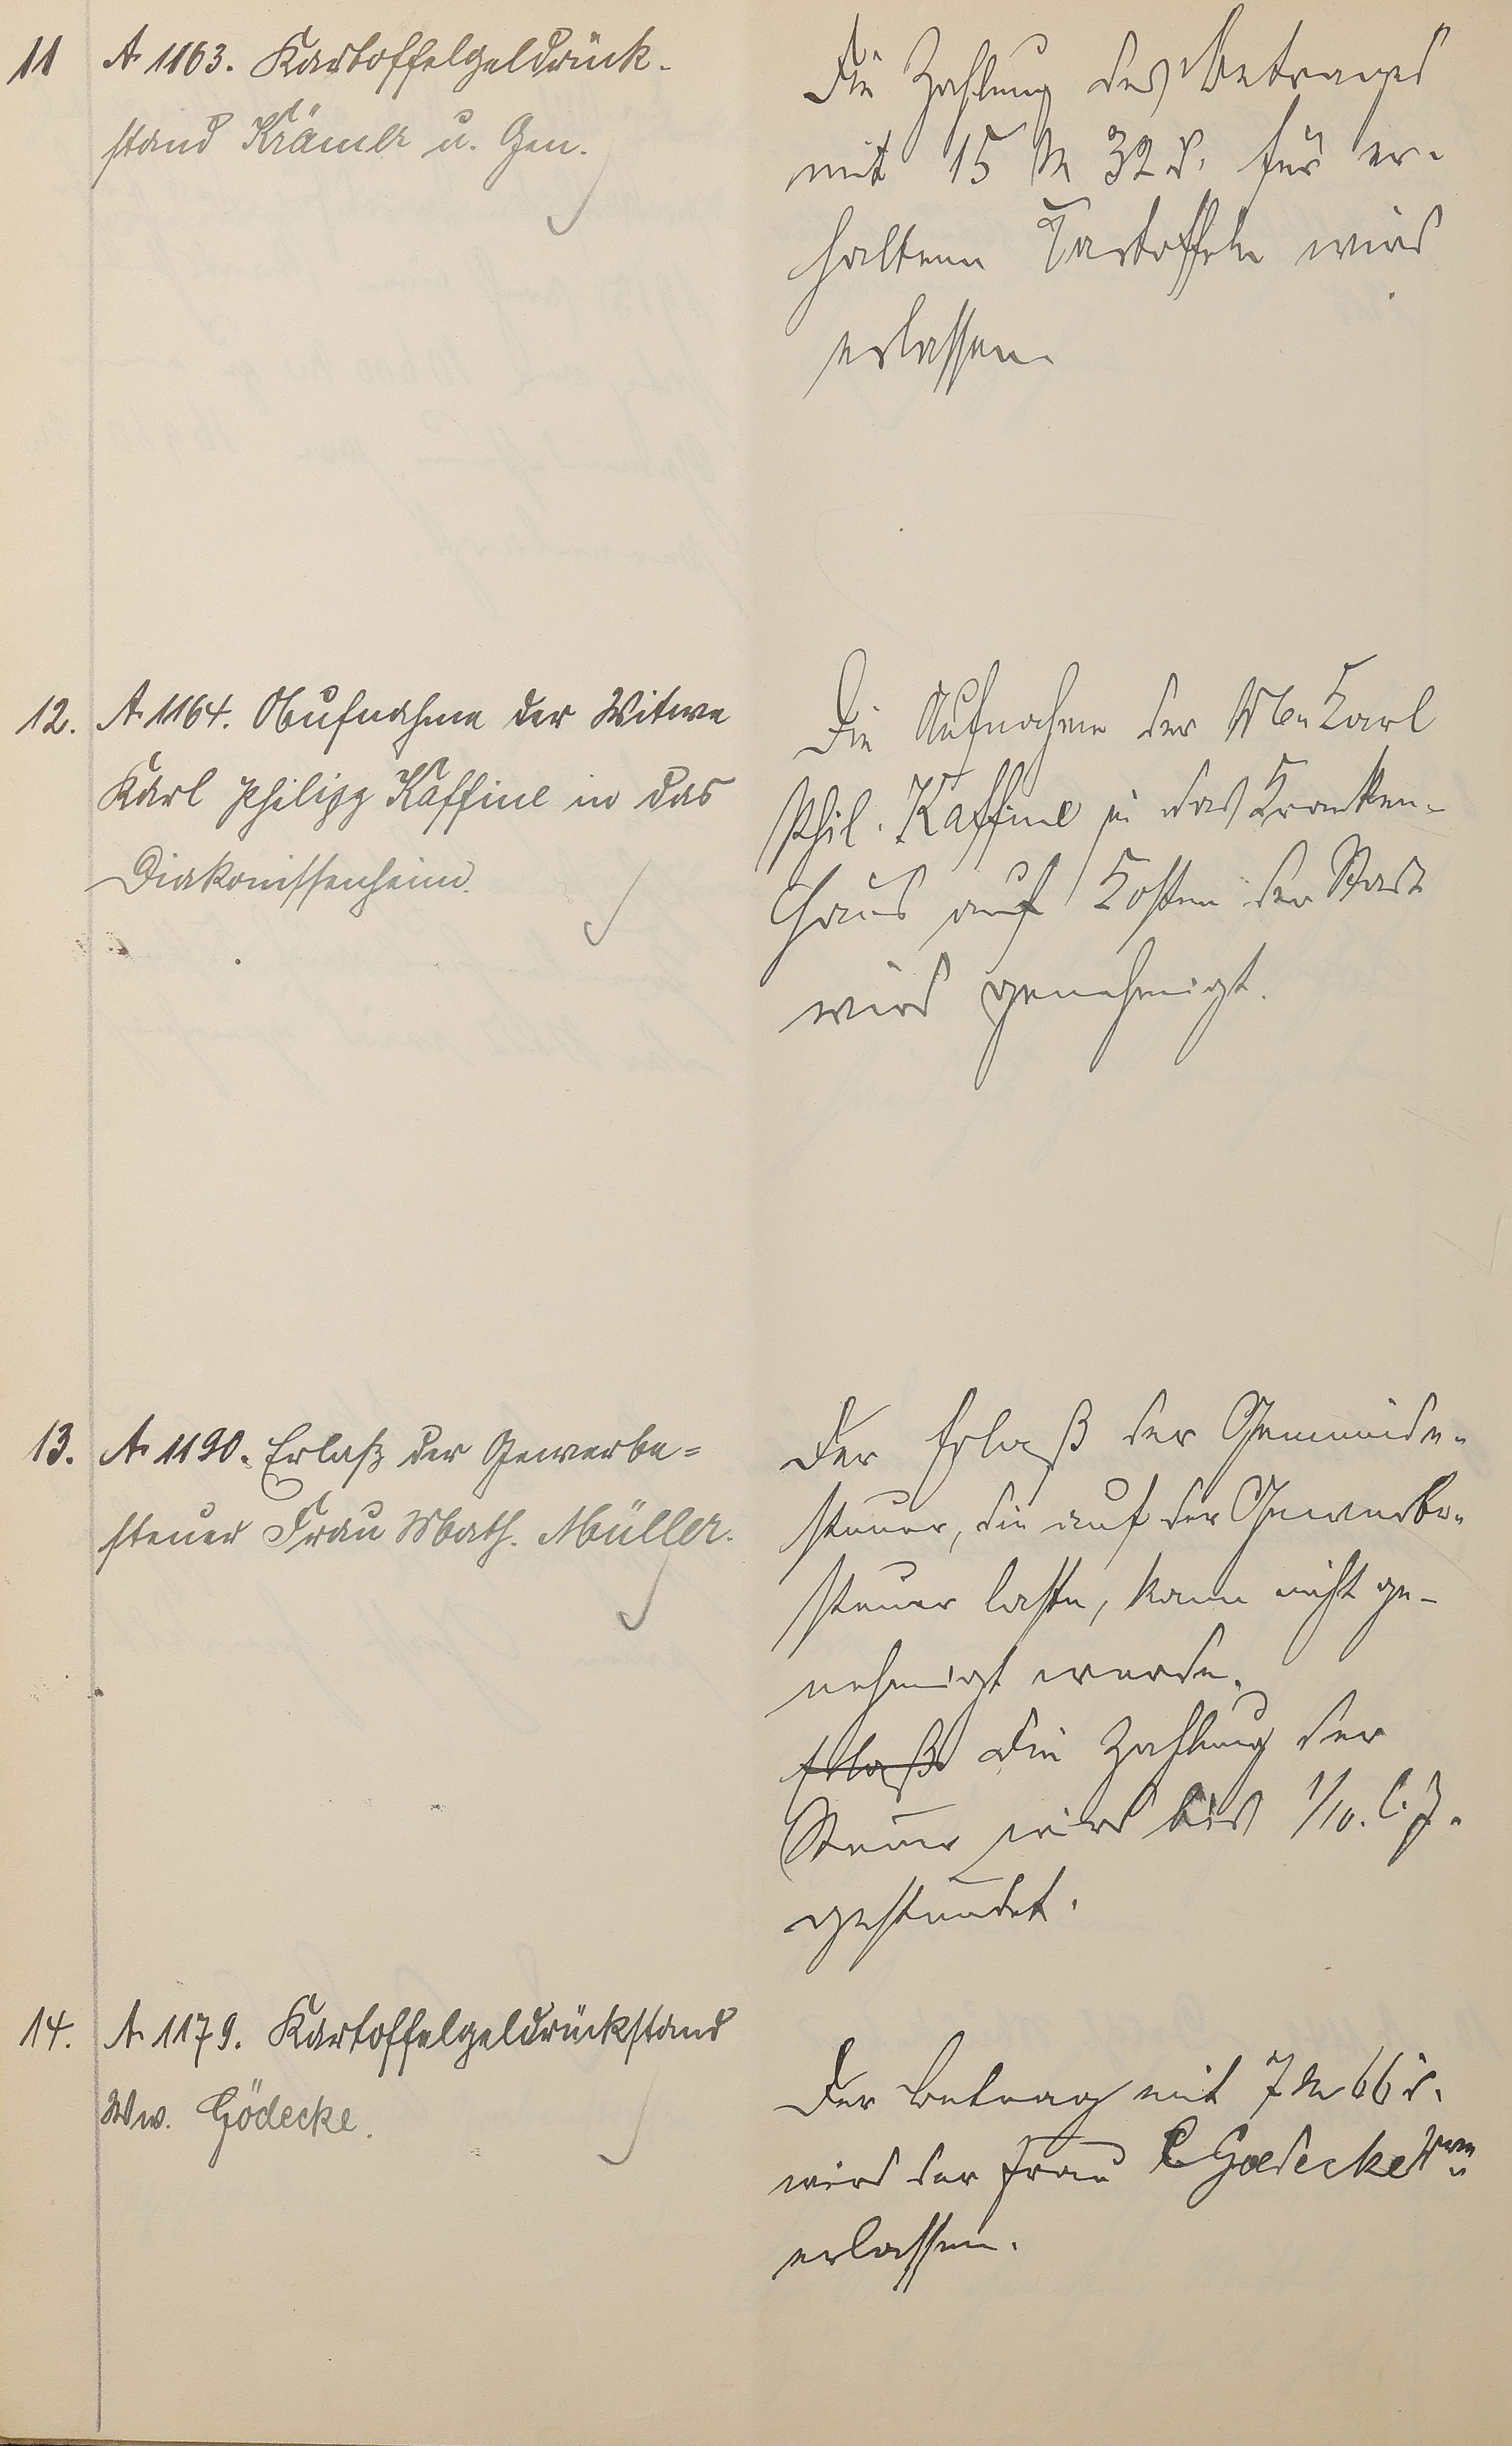 11 A. 1163. Kartoffelgeldrück-
stand Krämer u. Gen.
Die Zahlung des Betrages
mit 15 M 32 d. für er-
haltene Kartoffeln wird
erlassen.
12. A. 1164. Aufnahme der Witwe
Karl Philipp Kaffine in das
Diakonissenheim.
Die Aufnahme der Ww. Karl
Phil. Kaffine in das Kranken-
haus auf Kosten der Stadt
wird genehmigt.
13. A. 1190. Erlaß der Gewerbe=
steuer Frau Math. Müller.
Der Erlaß der Gemeinde-
steuer, die auf der Gewerbe-
steuer laste, kann nicht ge-
nehmigt werde.
Erlaß Die Zahlung der
Steuer wird bis 1/10. l. J.
gestundet.
14. A. 1179. Kartoffelgeldrückstand
Ww. Gödecke.
Der Betrag mit 7 M 66 d.
wird der Frau C Goedecke Wwe
erlassen.